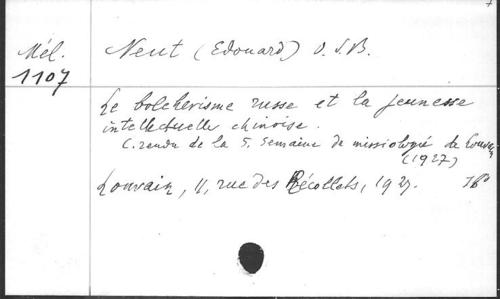 Mél.
1107
Neut (Edouard) O.S.B.
Le bolchevisme russe et la jeunesse
intellectuelle chinoise.
C. rendu de la 5. Semaine de missiologie de Louvain
(1927)
Louvain, 11, rue des Récollets, 1927.